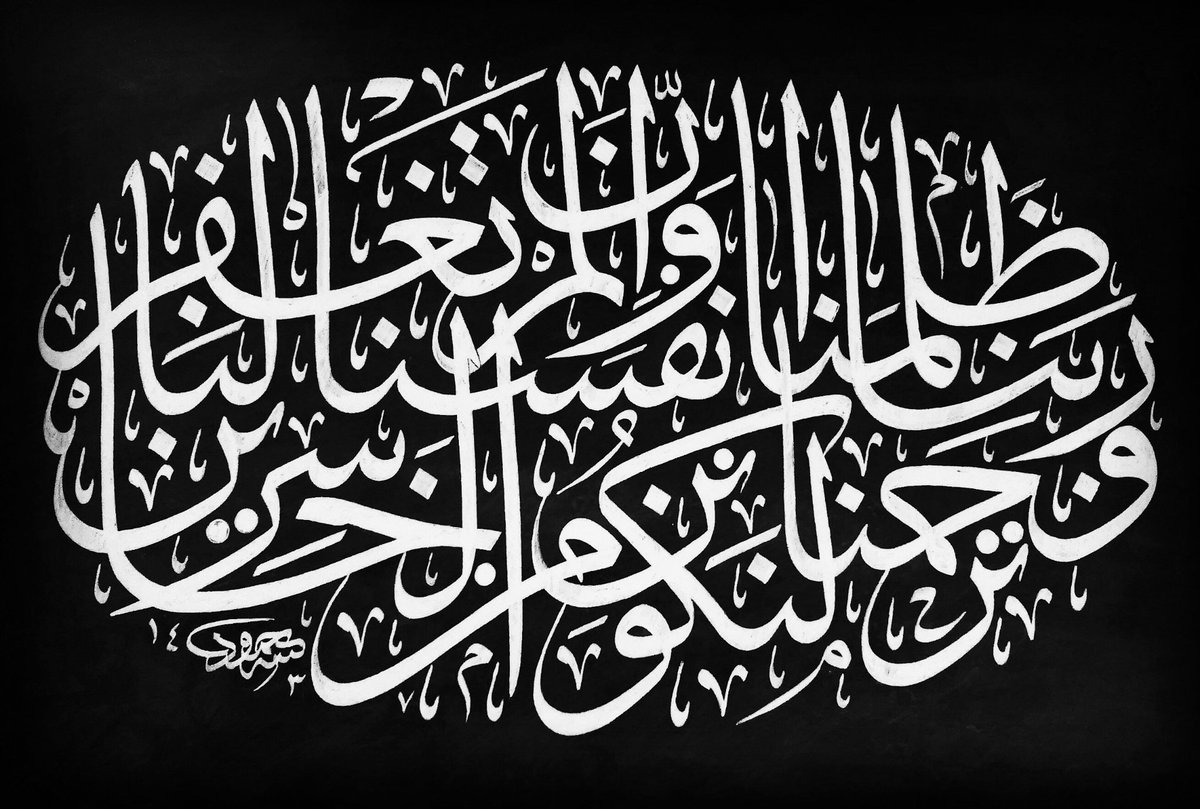 ربنا ظلمنا أنفسنا وإن لم تغفر لنا
وترحمنا لنكونن من الخاسرين